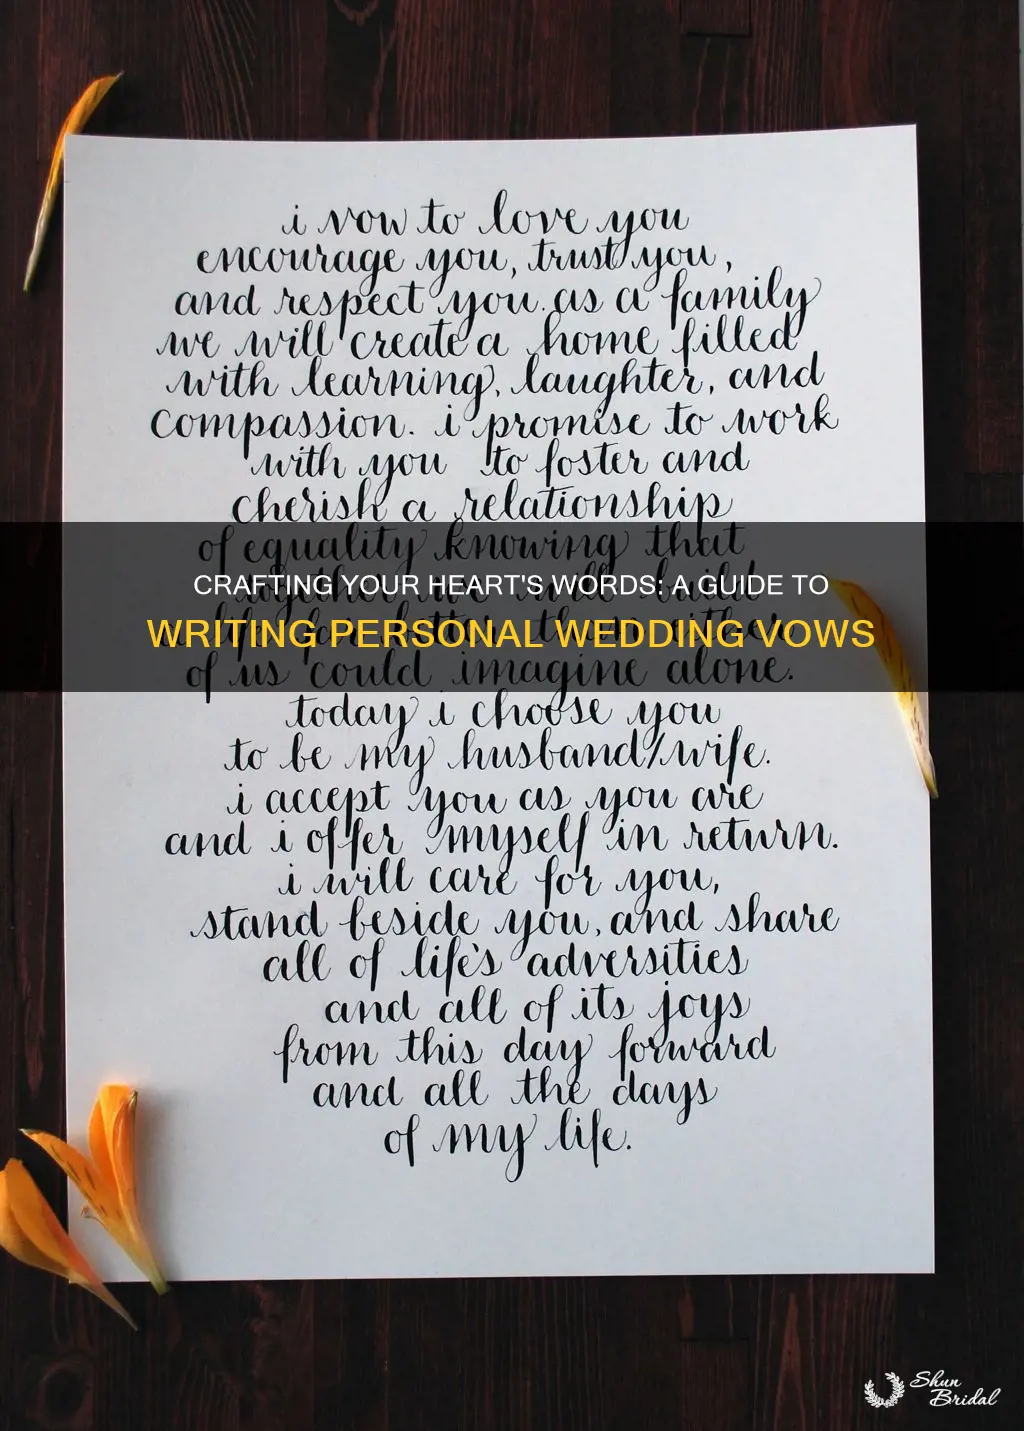 i vow to love you
encourage you, trust you,
and respect you. as a family
we will create a home filled
with learning, laughter, and
compassion. i promise to work
with you to foster and
cherish a relationship
of equality knowing that
together build
CRAFTING YOUR HEART'S WORDS: A GUIDE TO
WRITING PERSONAL WEDDING VOWS
of us could imagine alone.
today i choose you
to be my husband/wife.
i accept you as you are
and i offer myself in return.
i will care for you,
stand beside you, and share
all of life's adversities
and all of its joys
from this day forward
and all the days
of my life.
Shun
Bridal